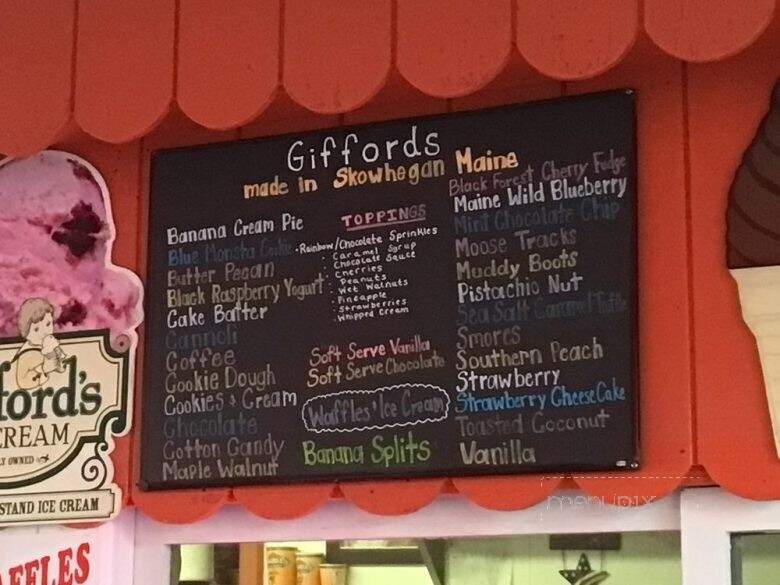 Giffords
made in Skowhegan Maine
Banana Cream Pie
Blue Monsta Cookie
Butter Pecan
Black Raspberry Yogurt
Cake Batter
Cannoli
Coffee
Cookie Dough
Cookies & Cream
Chocolate
Cotton Candy
Maple Walnut
TOPPINGS
· Rainbow/Chocolate Sprinkles
· Caramel Syrup
· Chocolate Sauce
· Cherries
· Peanuts
· Wet Walnuts
· Pineapple
· Strawberries
· Whipped Cream
Soft Serve Vanilla
Soft Serve Chocolate
Waffles & Ice Cream
Banana Splits
Black Forest Cherry Fudge
Maine Wild Blueberry
Mint Chocolate Chip
Moose Tracks
Muddy Boots
Pistachio Nut
Sea Salt Caramel Truffle
Smores
Southern Peach
Strawberry
Strawberry CheeseCake
Toasted Coconut
Vanilla
ford's
CREAM
LY OWNED
STAND ICE CREAM
AFFLES
menupix